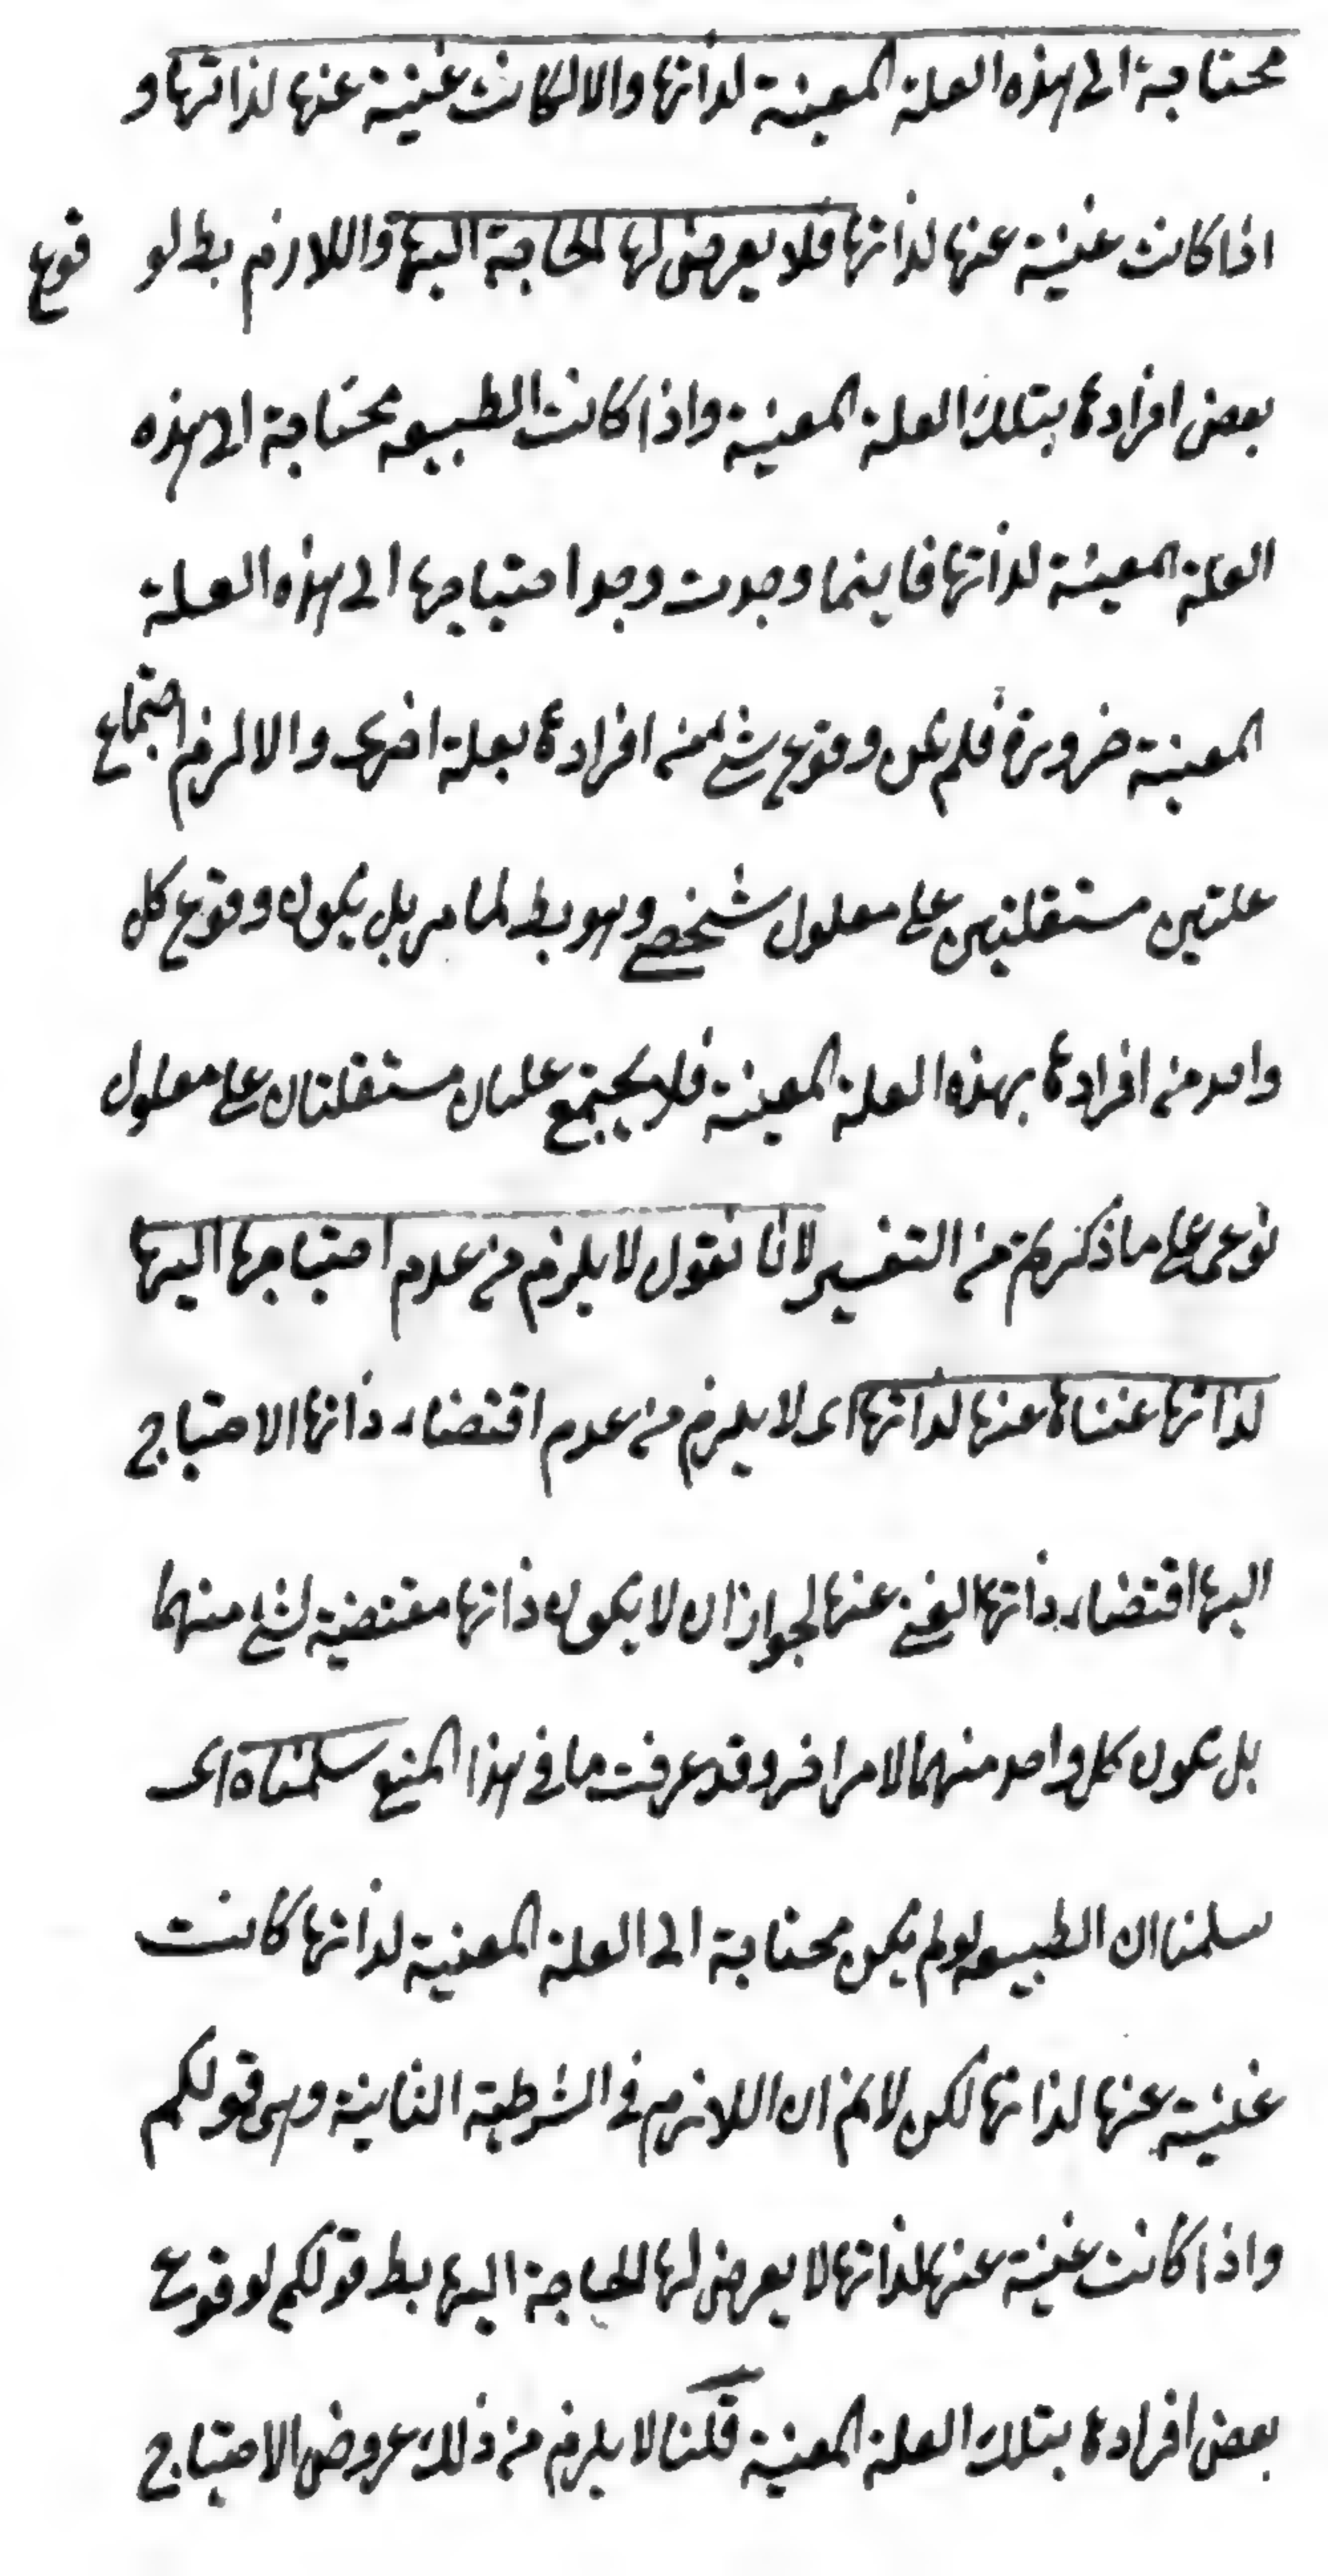 محتاجة الى هذه العلة المعينة لذاتها والا لكانت غنية عنها لذاتها و
اذا كانت غنية عنها لذاتها فلا يعرض لها الحاجة اليها واللازم بط لو قوع
بعض افرادها بتلك العلة المعينة واذا كانت الطبيعه محتاجة الى هذه
العلة المعينة لذاتها فاينما وجدت وجد احتياجها الى هذه العلة
المعينة ضرورة فلم يمكن وقوع شئ من افرادها بعلة اخرى والا لزم اجتماع
علتين مستقلتين على معلول شخصي وهو بط لما مر بل يكون وقوع كل
واحد من افرادها بهذه العلة المعينة فلا يجتمع علتان مستقلتان على معلول
نوعى على ما ذكرتم من التفسير لانا نقول لا يلزم من عدم احتياجها اليها
لذاتها غناها عنها لذاتها اى لا يلزم من عدم اقتضاء ذاتها الاحتياج
اليها اقتضاء ذاتها الغنى عنها لجواز ان لا يكون ذاتها مقتضية لشئ منهما
بل يكون كل واحد منهما لامر اخر وقد عرفت ما فى هذا المنع سلمناه اى
سلمنا ان الطبيعه لو لم يكن محتاجة الى العلة المعينة لذاتها كانت
غنية عنها لذاتها لكن لا نم ان اللازم فى الشرطية الثانية وهى قولكم
واذا كانت غنية عنها لذاتها لا يعرض لها الحاجة اليها بط قولكم لوقوع
بعض افرادها بتلك العلة المعينة قلنا لا يلزم من ذلك عروض الاحتياج